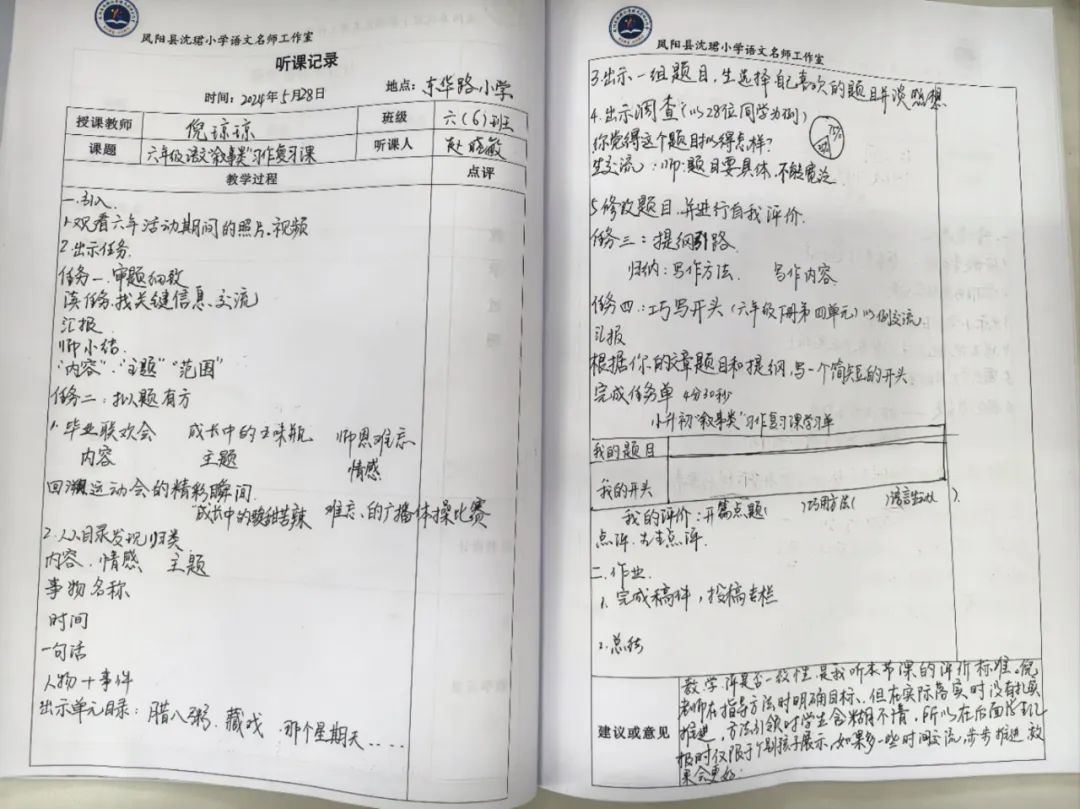 凤阳县沈珺小学语文名师工作室
听课记录
时间：2024年5月28日 地点：东华路小学
授课教师 倪琼琼 班级 六（6）班
课题 六年级语文"叙事类"习作复习课 听课人 赵晓敏
教学过程 点评
一.引入
1.观看六年活动期间的照片.视频
2.出示任务.
任务一.审题细致
读任务.找关键信息.交流
汇报
师小结.
"内容"."主题""范围"
任务二：拟题有方
1.毕业联欢会 成长中的五味瓶 师恩难忘
内容 主题 情感
回溯运动会的精彩瞬间.
成长中的酸甜苦辣 难忘的广播体操比赛
2.从目录发现归类
内容.情感 主题
事物名称
时间
一句话
人物+事件
出示单元目录：腊八粥.藏戏.那个星期天....
凤阳县沈珺小学语文名师工作室
3.出示一组题目,生选择自己喜欢的题目并谈思想
4.出示调查(以28位同学为例) 75%
你觉得这个题目拟得怎样?
生交流：师:题目要具体,不能宽泛
5.修改题目.并进行自我评价.
任务三：提纲引路.
归纳：写作方法. 写作内容.
任务四:巧写开头(六年级下册第四单元)以例交流
汇报
根据你的文章题目和提纲,写一个简短的开头
完成任务单 4分30秒
小升初"叙事类"习作复习课学习单
我的题目
我的开头
我的评价：开篇点题( )巧用方法( )语言生动( ).
点评.
二.作业.
1.完成稿件，投稿专栏
2.总结
建议或意见
教学评是否一致性是我听本节课的评价标准.倪
老师在指导方法时明确目标、但在实际落实时没有扎实
推进，方法引领时学生会模糊不清，所以在后面
报时仅限于个别孩子展示,如果多一些时间交流,步步推进,效
果会更好.